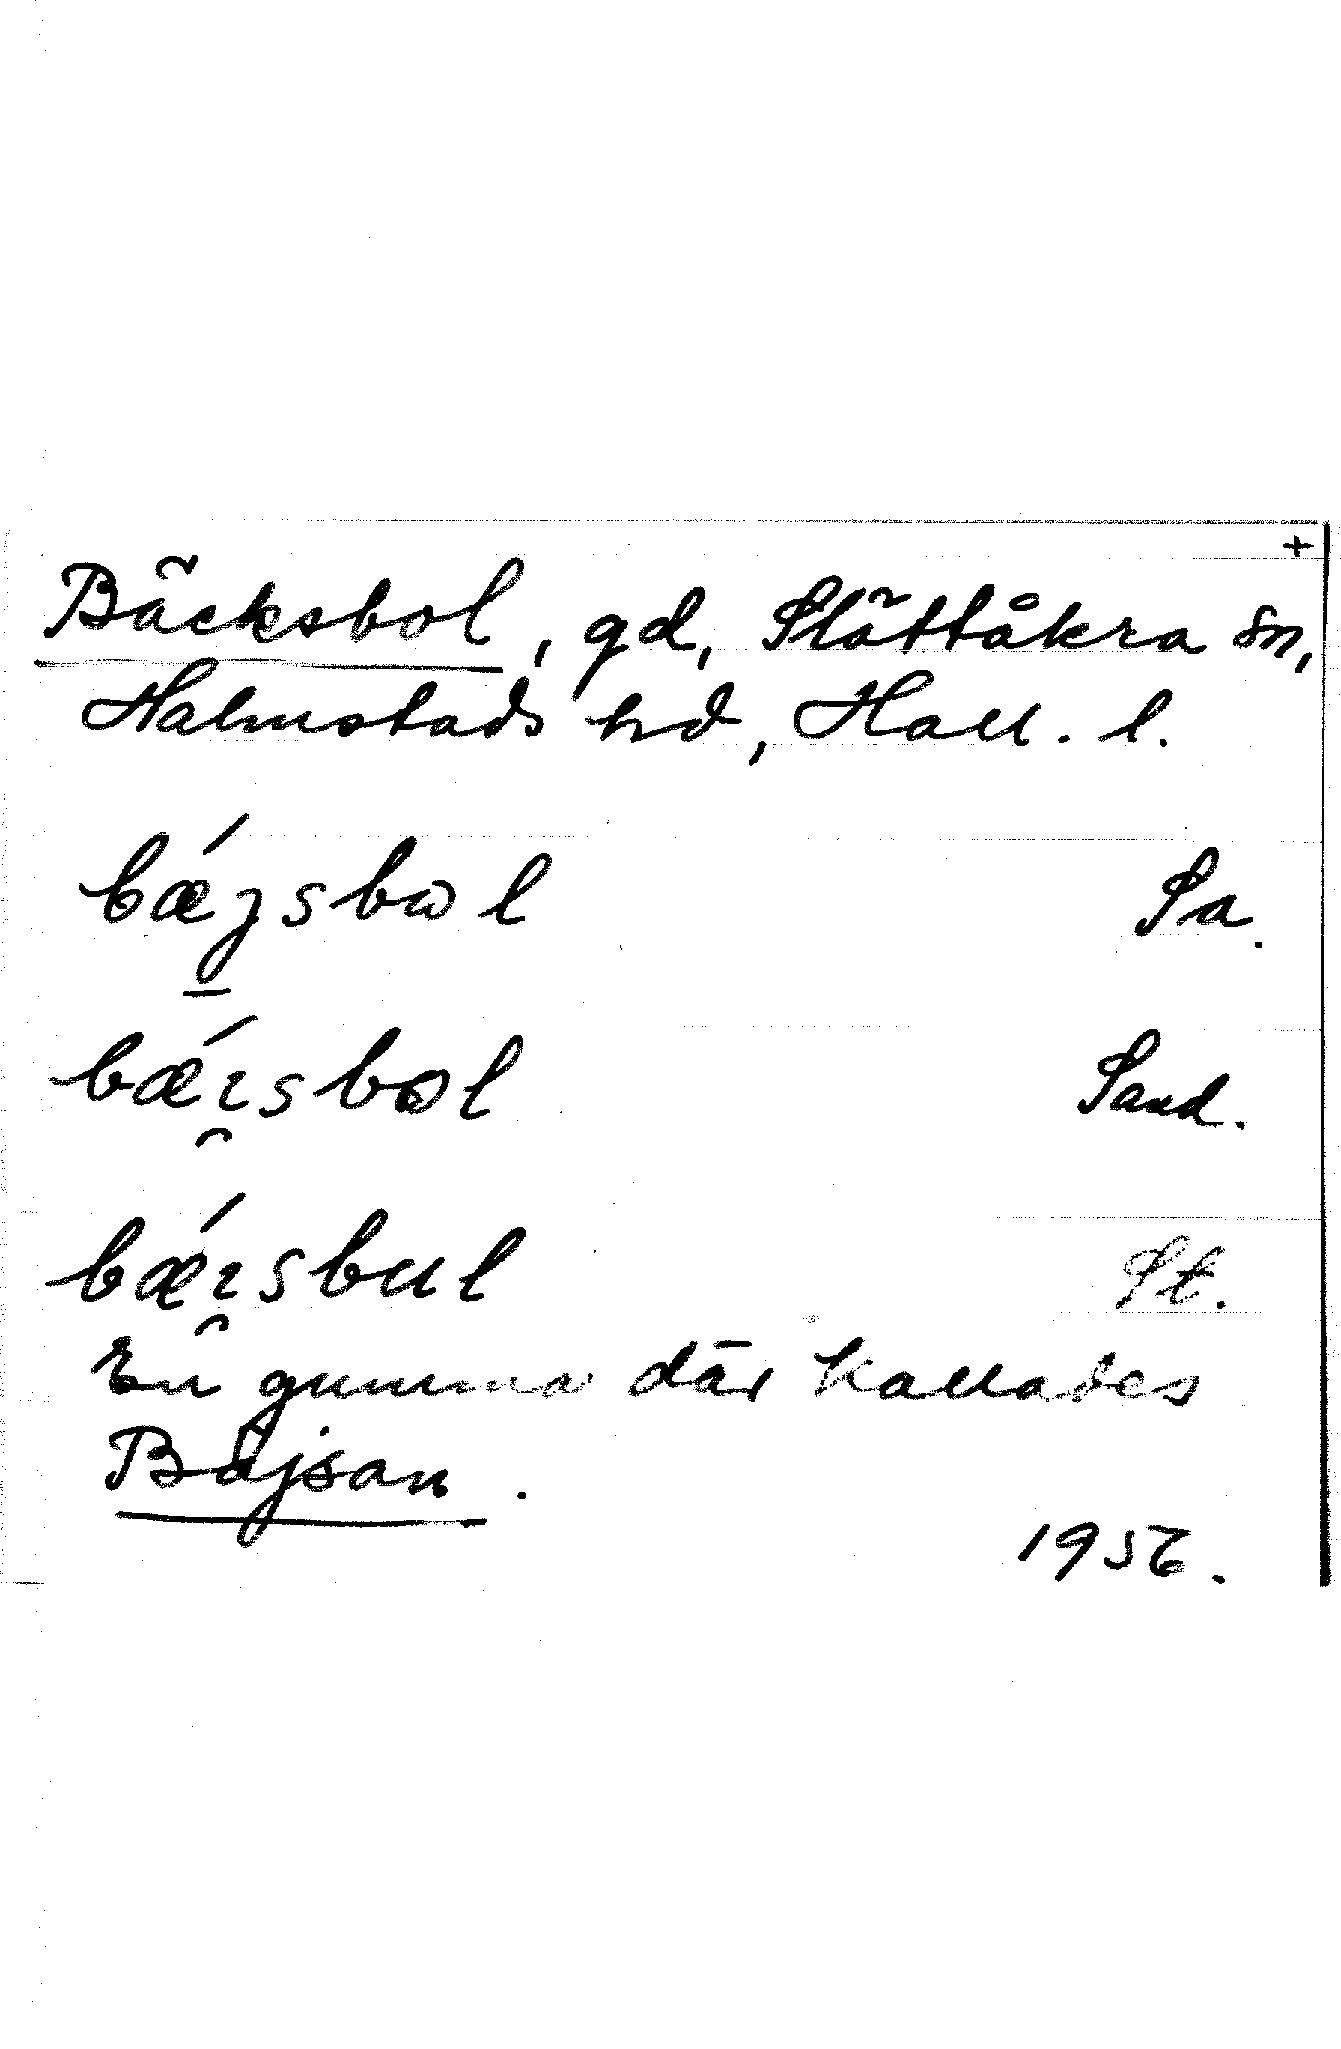 +
Bäcksbol, gd, Slättåkra sn,
Halmstads hd, Hall. l.
bǽȷsbωl Sa.
bǽɪ̯sbol Sand.
bǽɪ̯sbul St.
En gumma där kallades
Båjsan.
1956.